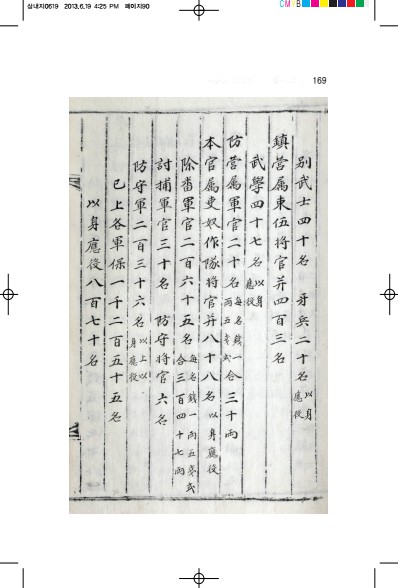 삼내지0619 2013.6.19 4:25 PM 페이지90
CMYB
169
別武士四十名 牙兵二十名 以身應役
鎮營属束伍將官并四百三名
武學四十七名 以身應役
防營属軍官二十名 每名錢一兩五戔式 合三十兩
本官属吏奴作隊將官并八十八名 以身應役
除番軍官二百六十五名 每名錢一兩五戔式 合三百四十七兩
討捕軍官三十名 防守將官六名
防守軍二百三十六名 以上以身應役
已上各軍保一千二百五十五名
以身應役八百七十名